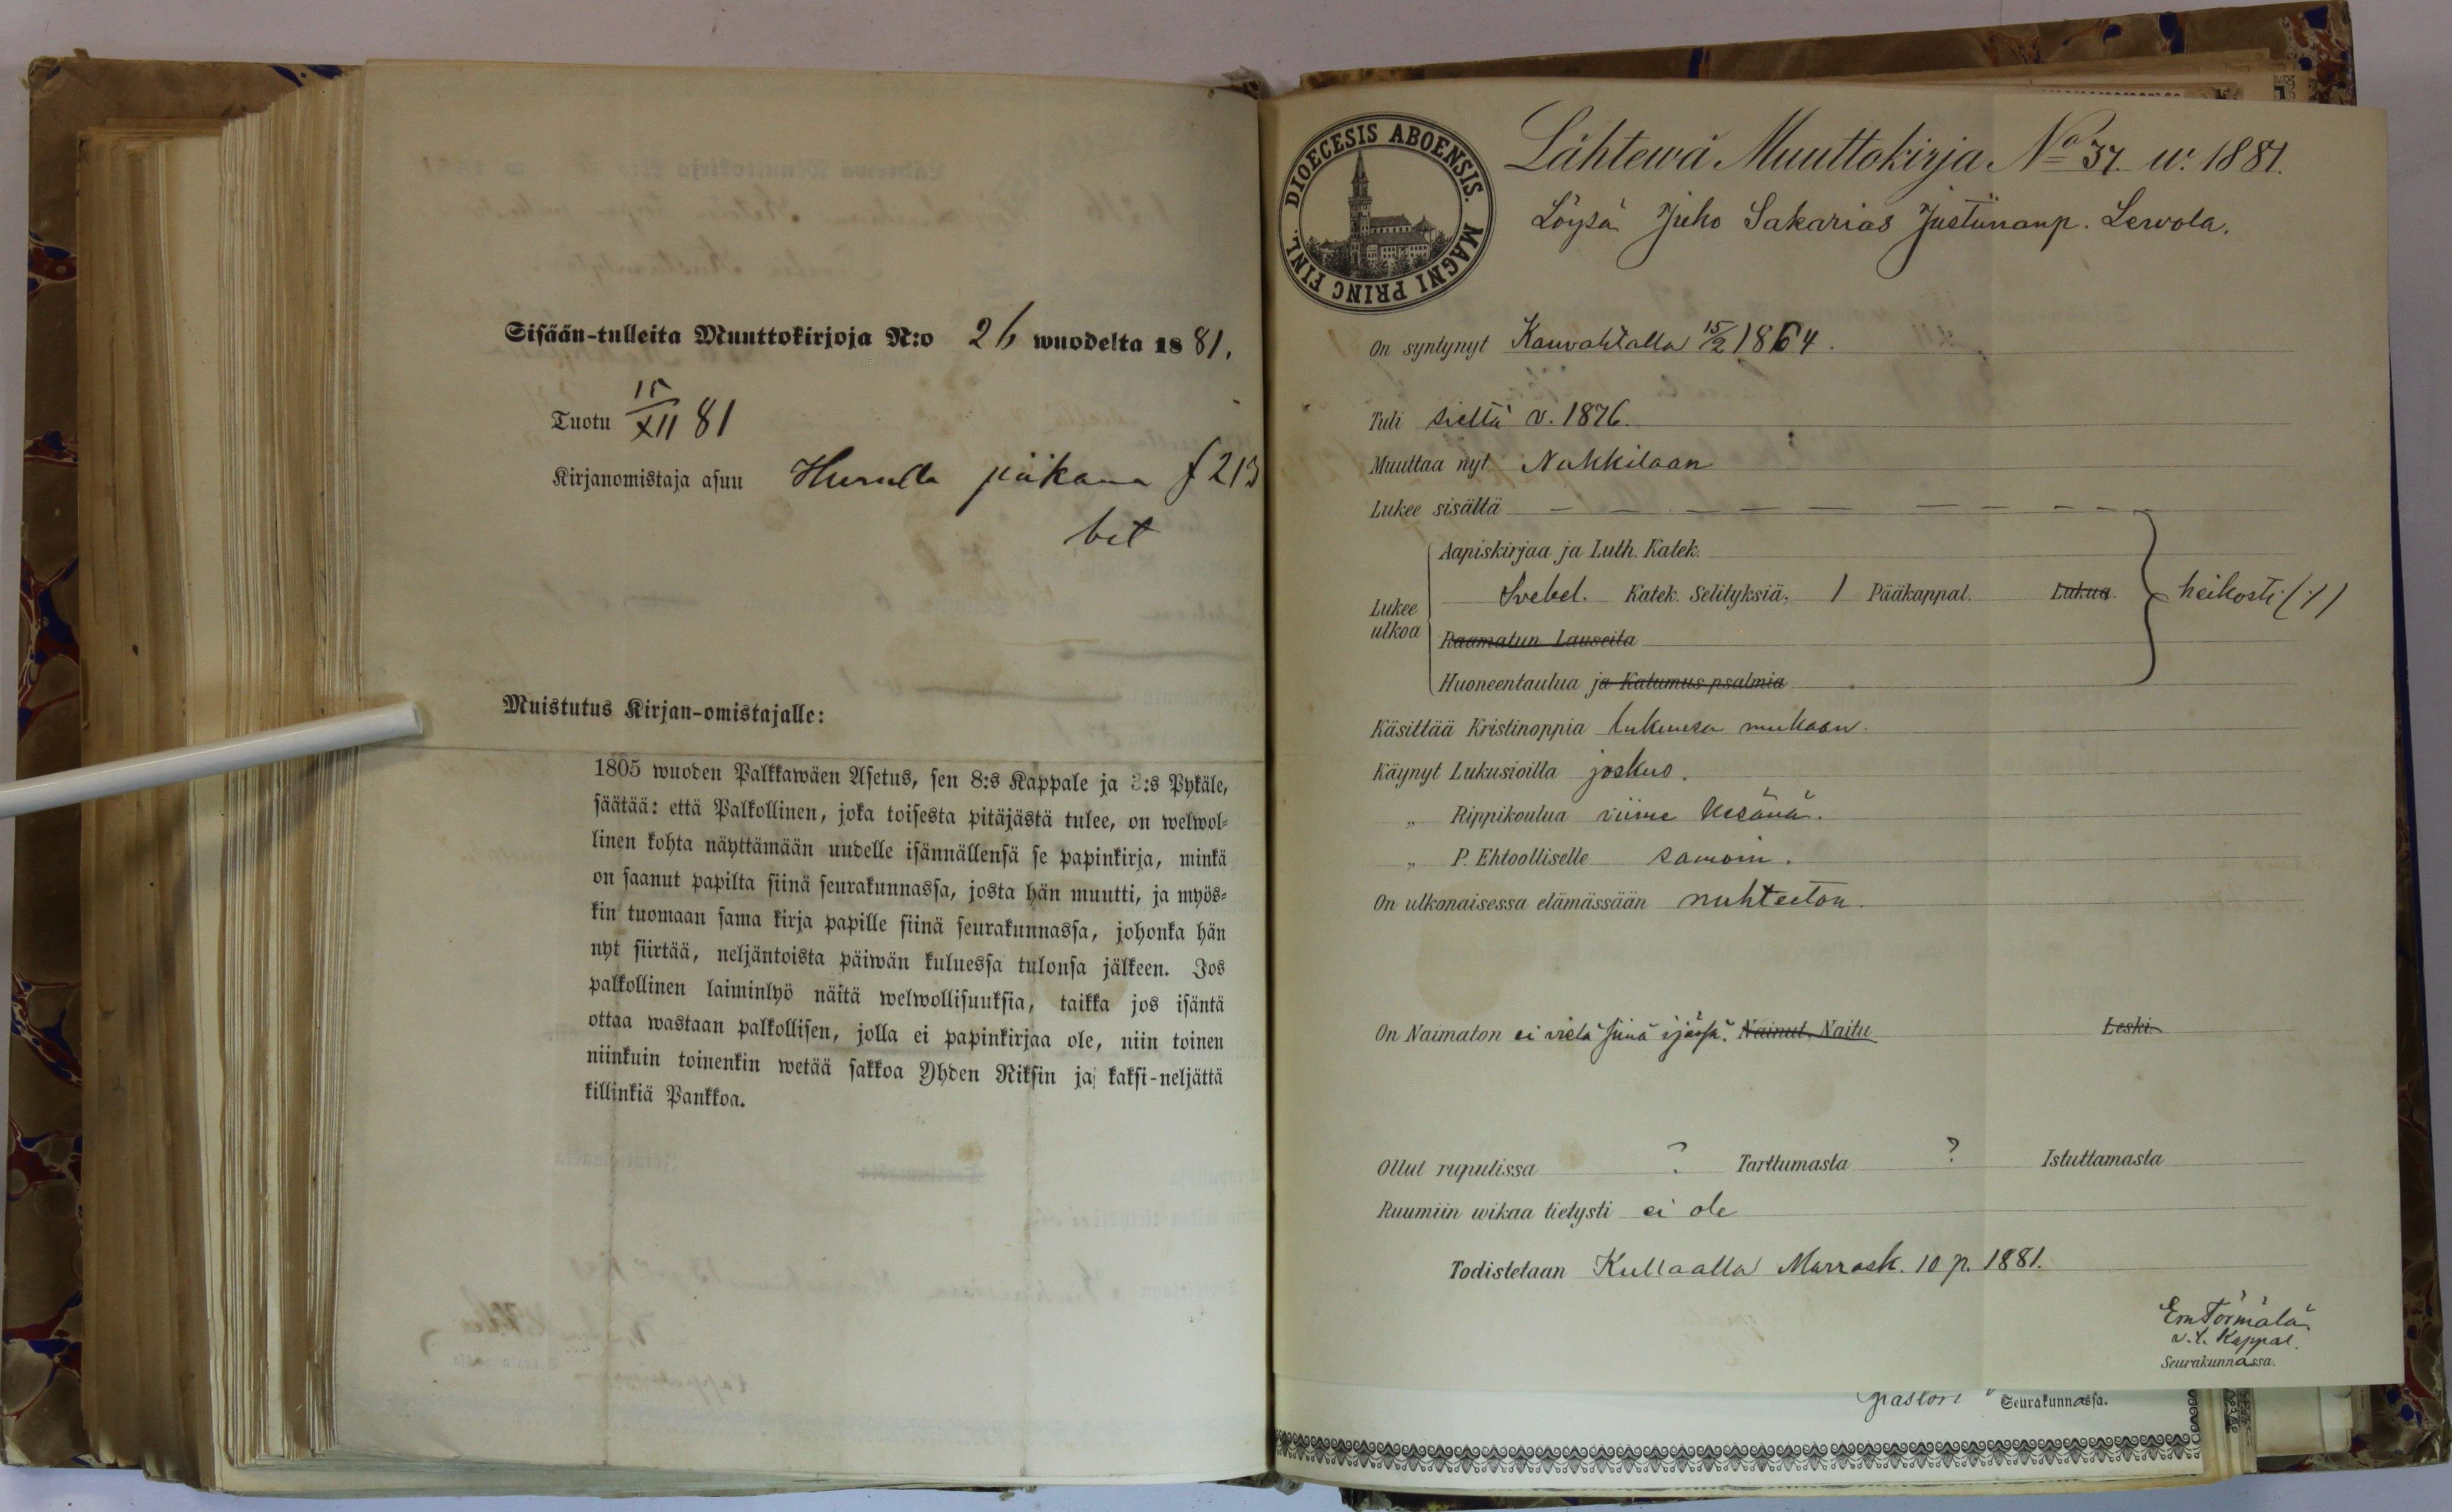 Sisään-tulleita Muuttokirjoja N:o 26 wuodelta 1881.
Tuotu 15/XII 81
Kirjanomistaja asuu piikana f 213
bet
Muistutus Kirjan-omistajalle:
1805 wuoden Palkkawäen Asetus, sen 8:s Kappale ja 3:s Pykäle,
säätää: että Palkollinen, joka toisesta pitäjästä tulee, on welwol=
linen kohta näyttämään uudelle isännällensä se papinkirja, minkä
on saanut papilta siinä seurakunnassa, josta hän muutti, ja myös=
kin tuomaan sama kirja papille siinä seurakunnassa, johonka hän
nyt siirtää, neljäntoista päiwän kuluessa tulonsa jälkeen. Jos
palkollinen laiminlyö näitä welwollisuuksia, taikka jos isäntä
ottaa wastaan palkollisen, jolla ei papinkirjaa ole, niin toinen
niinkuin toinenkin wetää sakkoa Yhden Riksin ja kaksi-neljättä
killinkiä Pankkoa.
DIOECESIS ABOENSIS. MAGNI PRINC FINL.
Lähtewä Muuttokirja No 37. w. 1881.
Löysä Juho Sakarias Justiinanp. Lewola.
On syntynyt Kauvatsalla 15/2 1864.
Tuli sieltä v. 1876.
Muuttaa nyt Nakkilaan
Lukee sisältä — — — — — — — — — —
Aapiskirjaa ja Luth. Katek.
Lukee ulkoa
Svebel. Katek. Selityksiä, 1 Pääkappal. Lukua. heikosti (1)
Raamatun Lauseita
Huoneentaulua ja Katumus psalmia
Käsittää Kristinoppia lukunsa mukaan.
Käynyt Lukusioilla joskus.
„ Rippikoulua viime kesänä.
„ P. Ehtoolliselle samoin.
On ulkonaisessa elämässään nuhteeton.
On Naimaton ei vielä siinä ijässä. Nainut, Naitu Leski.
Ollut rupulissa ? Tarttumasta ? Istuttamasta
Ruumiin wikaa tietysti ei ole
Todistetaan Kullaalla Marrask. 10 p. 1881.
Em Törmälä
v.t. Kappal.
Seurakunnassa.
pastori Seurakunnassa.